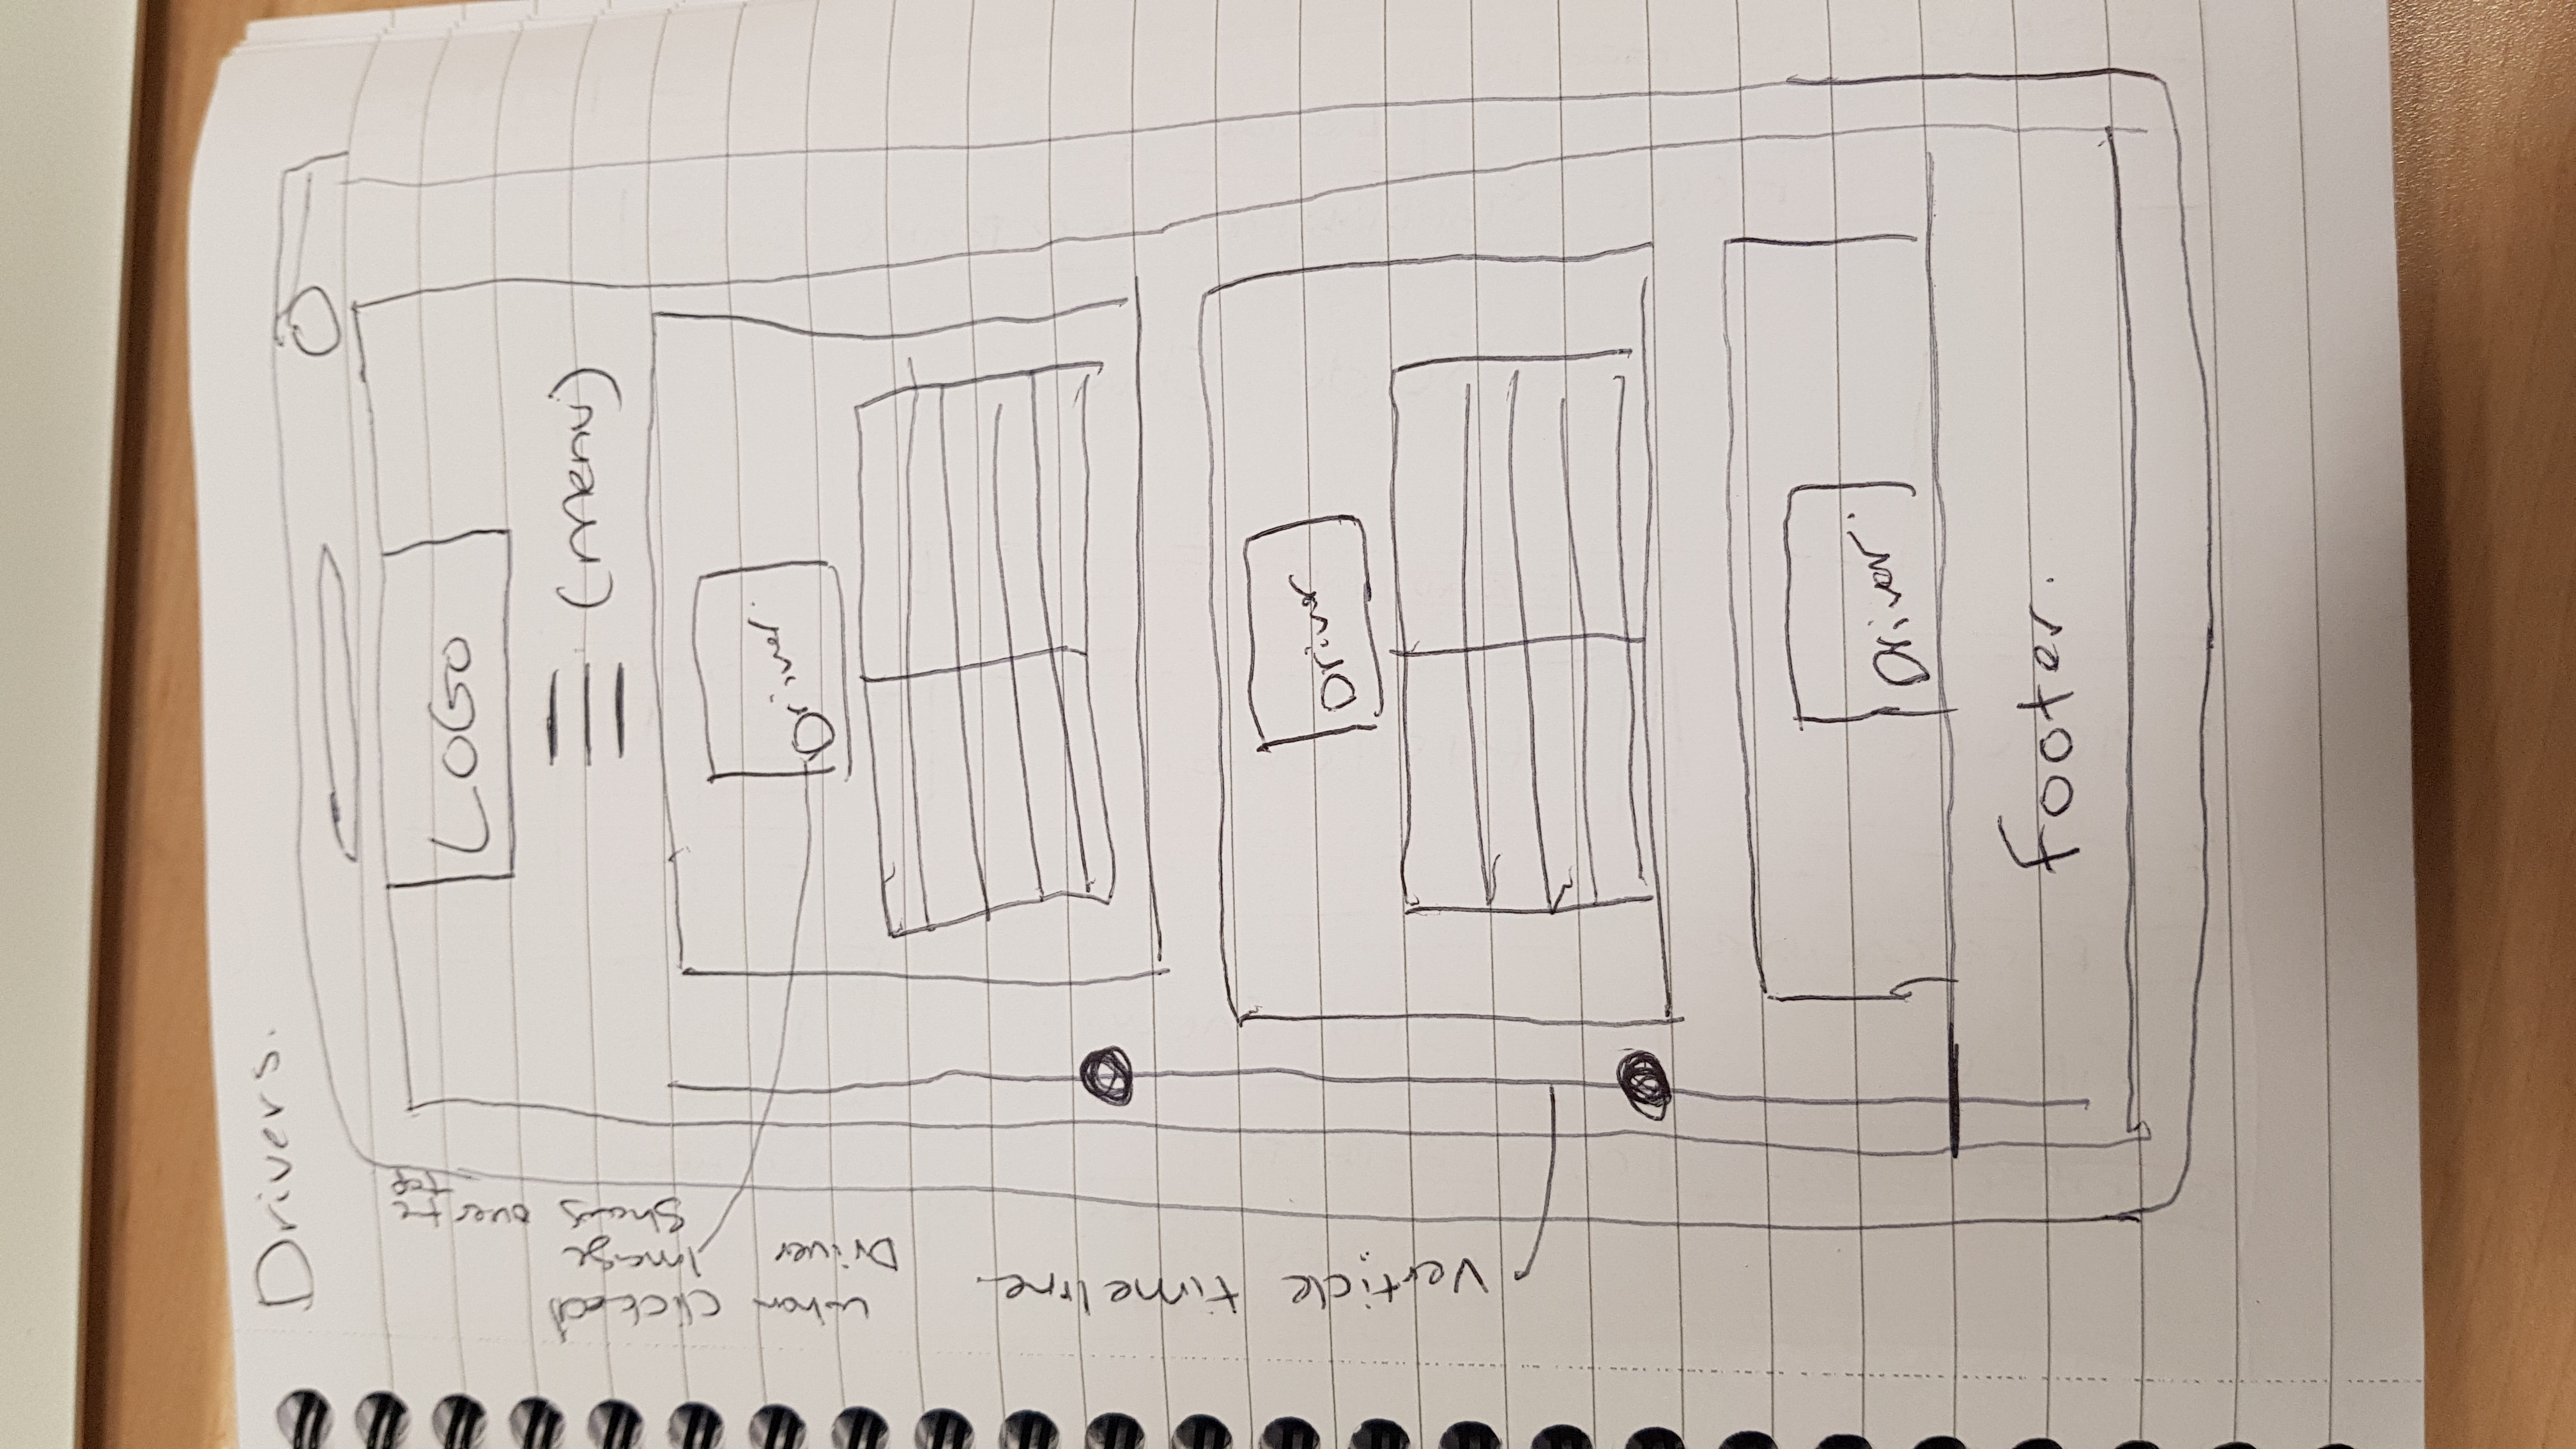 Drivers.
LOGO
(menu)
when clicked
Driver Image
Shows over the
top
Driver.
Verticle timeline.
Driver
Driver.
Footer.